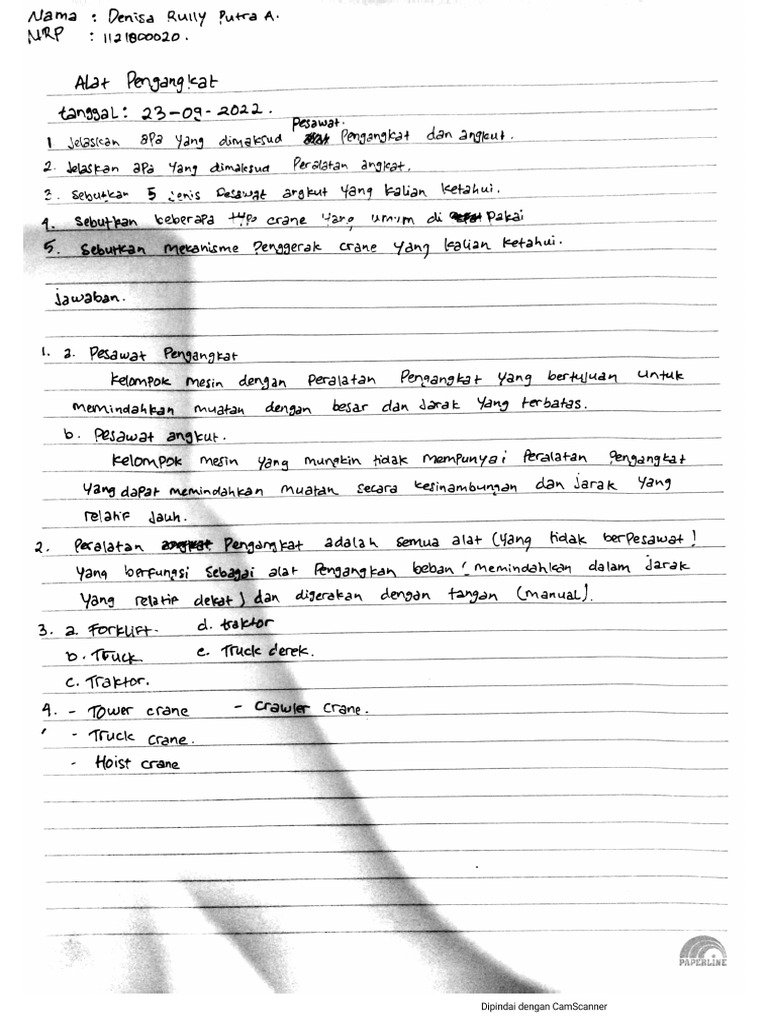 Nama : Denisa Rully Putra A.
NRP : 1121800020.
Alat Pengangkat
tanggal : 23-09-2022.
Pesawat.
1 Jelaskan apa yang dimaksud Pengangkat dan angkut.
2. Jelaskan apa yang dimaksud Peralatan angkat.
3. Sebutkan 5 jenis Pesawat angkut yang kalian ketahui.
4. Sebutkan beberapa type crane yang umum di Pakai
5. Sebutkan Mekanisme Penggerak crane yang kalian ketahui.
Jawaban.
1. a. Pesawat Pengangkat
Kelompok mesin dengan Peralatan Pengangkat yang bertujuan untuk
memindahkan muatan dengan besar dan Jarak yang terbatas.
b. Pesawat angkut.
Kelompok mesin yang mungkin tidak mempunyai Peralatan Pengangkat
yang dapat memindahkan muatan secara kesinambungan dan jarak yang
relatif Jauh.
2. Peralatan Pengangkat adalah semua alat (yang tidak berpesawat)
yang berfungsi sebagai alat Pengangkan beban (memindahkan dalam jarak
yang relatif dekat) dan digerakan dengan tangan (manual).
3. a. Forklift. d. traktor
b. Truck. e. Truck derek.
c. Traktor.
4. - Tower crane - Crawler crane.
- Truck crane.
- Hoist crane
PAPERLINE
Dipindai dengan CamScanner